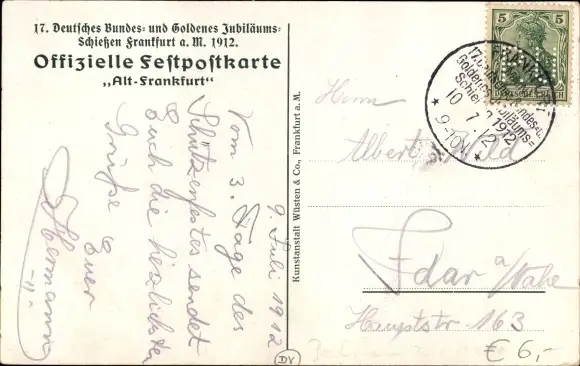 17. Deutsches Bundes- und Goldenes Jubiläums-
Schießen Frankfurt a. M. 1912.
Offizielle Festpostkarte
„Alt-Frankfurt“
9. Juli 1912
Vom 3. Tage des
Schützenfestes sendet
Euch die herzlichsten
Grüße Euer
Hermann
Kunstanstalt Wüsten & Co., Frankfurt a. M.
DV
5 5
DEUTSCHES REICH
FRANKFURT
17. Deutsches Bundes- u.
Goldenes Jubiläums=
Schiessen 1912
10 7 12
* 9-10V. *
Herrn
Albert Wild
Idar a/Nahe
Hauptstr 163
€ 6,-